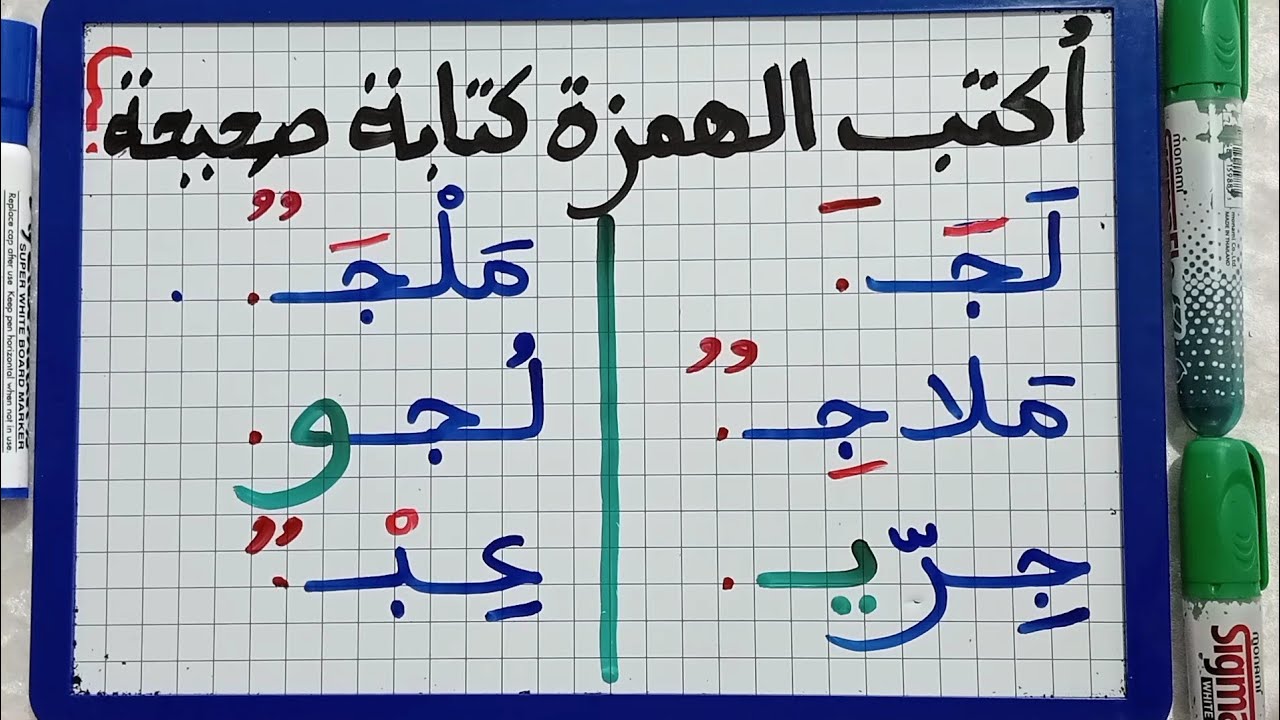 اُكتب الهمزة كتابة صحيحة؟
لَجَـ.َ
مَلْجَـ.ٌ
مَلاجِـ.ٌ
لُجو.
جِرّيـ.
عِبْـ.ٌ
monami
Sigma
WHITE
SUPER WHITE BOARD MARKER
Replace cap after use Keep pen horizontal when not in use.